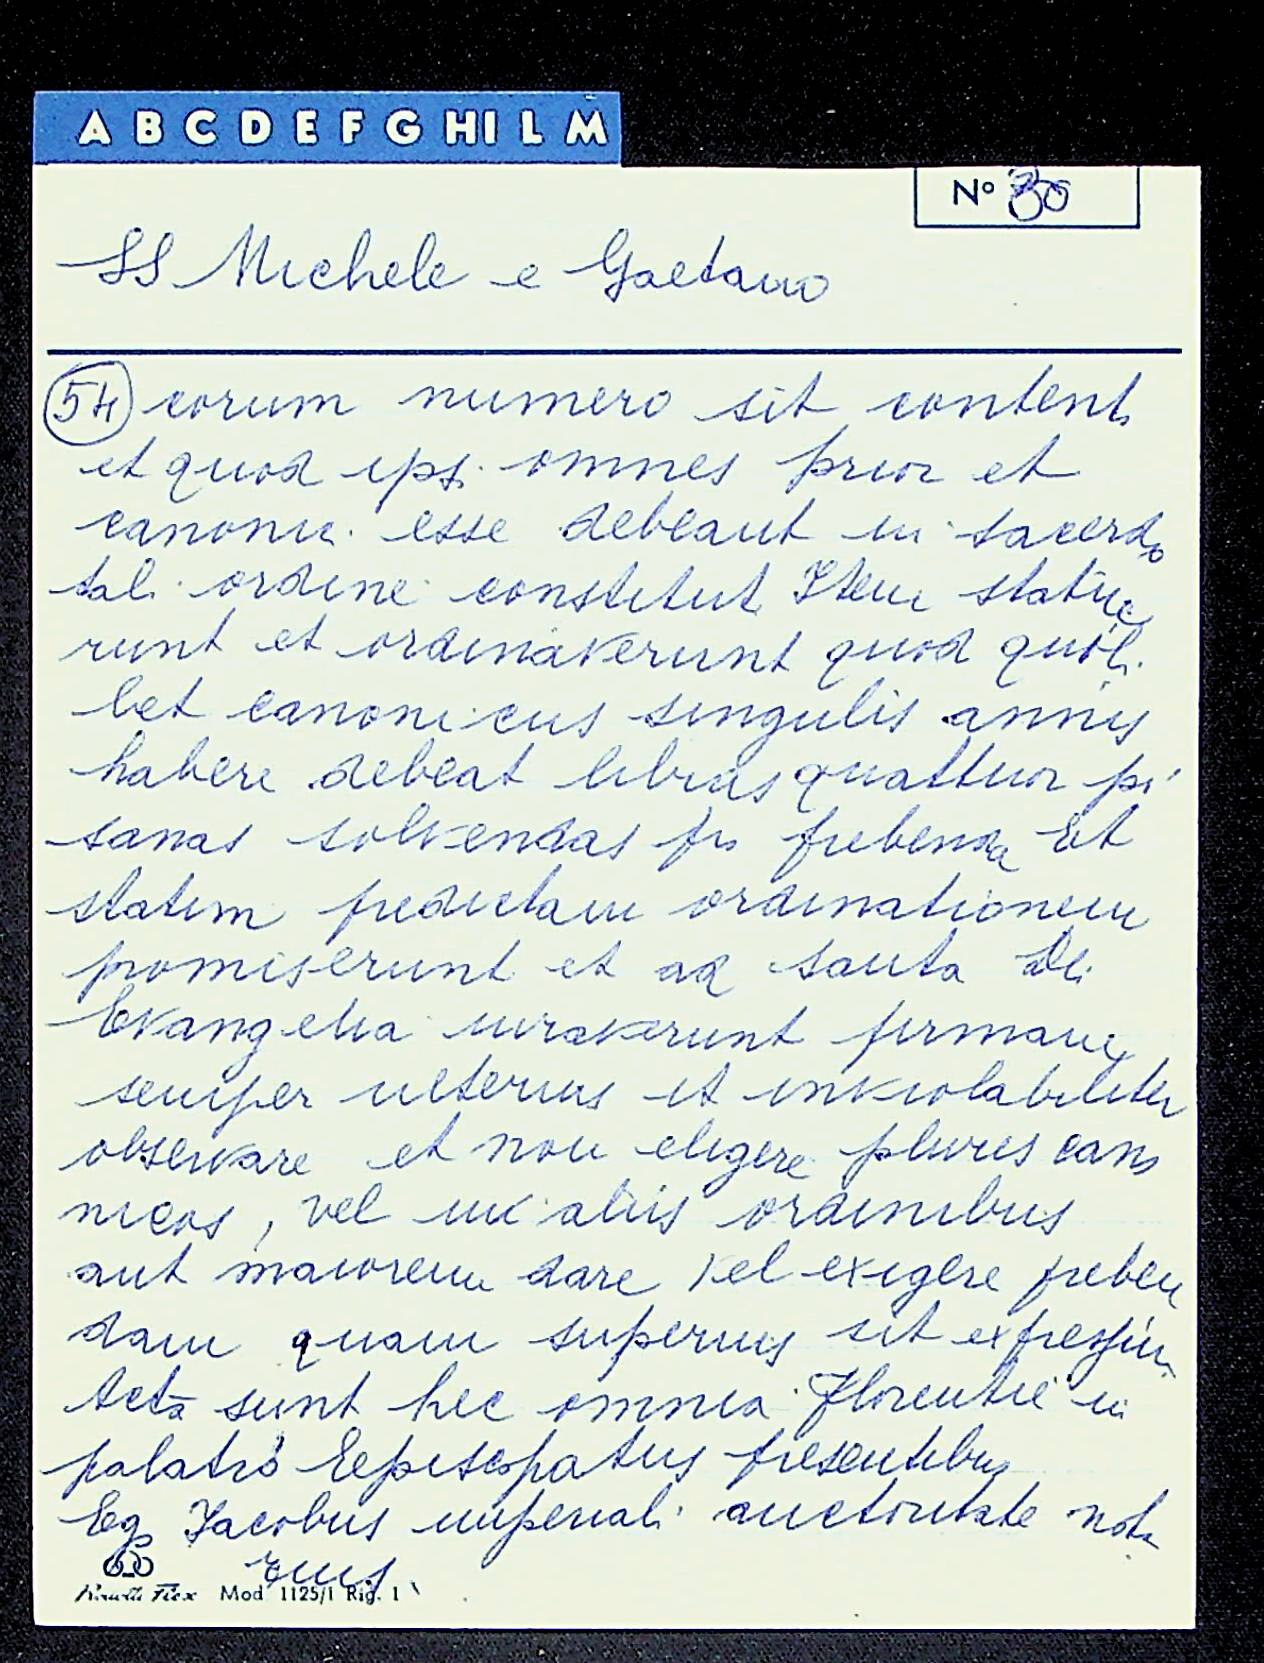 A B C D E F G HI L M
Nº 30
SS Michele e Gaetano
54 eorum numero sit content.
et quod ips. omnes prior et
canonic. esse debeant in sacerdo
tal. ordine constitut. Item statue
runt et ordinaverunt quod quili
bet canonicus singulis annis
habere debeat libras quattuor pi
sanas solvendas pro prebenda Et
statim predictam ordinationem
promiserunt et ad santa Dei
Evangelia iuraverunt firmam
semper ulterius et inviolabiliter
observare et non eligere plures cano
nicos, vel in aliis ordinibus
aut maiorem dare vel exigere preben
dam quam superius sit expressum
Acta sunt hec omnia Florentie in
palatio Eepiscopatus presentibus
Ego Jacobus imperiali auctoritate nota
rius
Mod 1125/1 Rig. 1